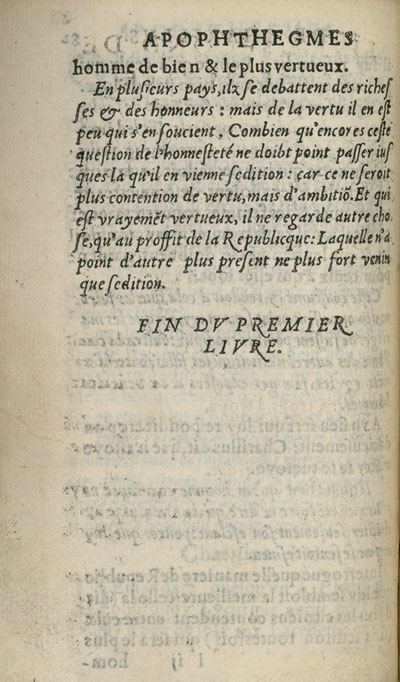 APOPHTHEGMES
homme de bien & le plus vertueux.
En plusieurs pays, ilz se debattent des riches
ses & des honneurs : mais de la vertu il en est
peu qui s'en soucient. Combien qu'encores ceste
question de l'honnesteté ne doibt point passer ius
ques là qu'il en vienne sedition : car ce ne seroit
plus contention de vertu, mais d'ambitiõ. Et qui
est vrayemẽt vertueux, il ne regarde autre cho
se, qu'au proffit de la Republicque: Laquelle n'a
point d'autre plus present ne plus fort venin
que sedition.
FIN DV PREMIER
LIVRE.